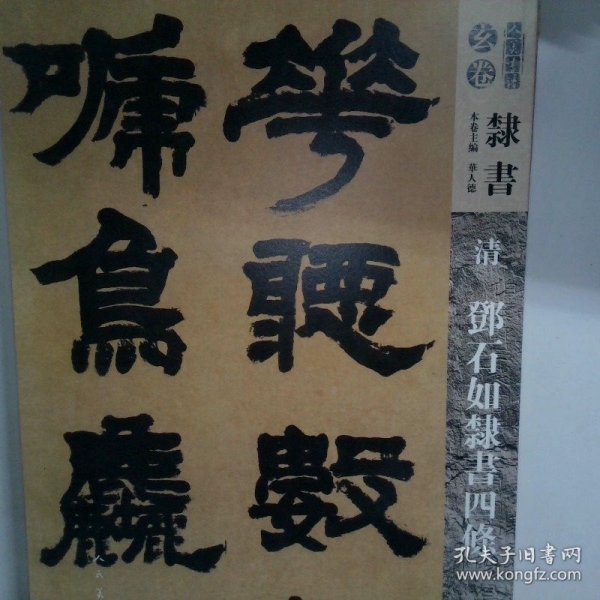 華聽數
鳥
人美書譜
玄卷
隸書
本卷主編 華人德
清 鄧石如隸書四條
孔夫子旧書网
www.kongfz.com